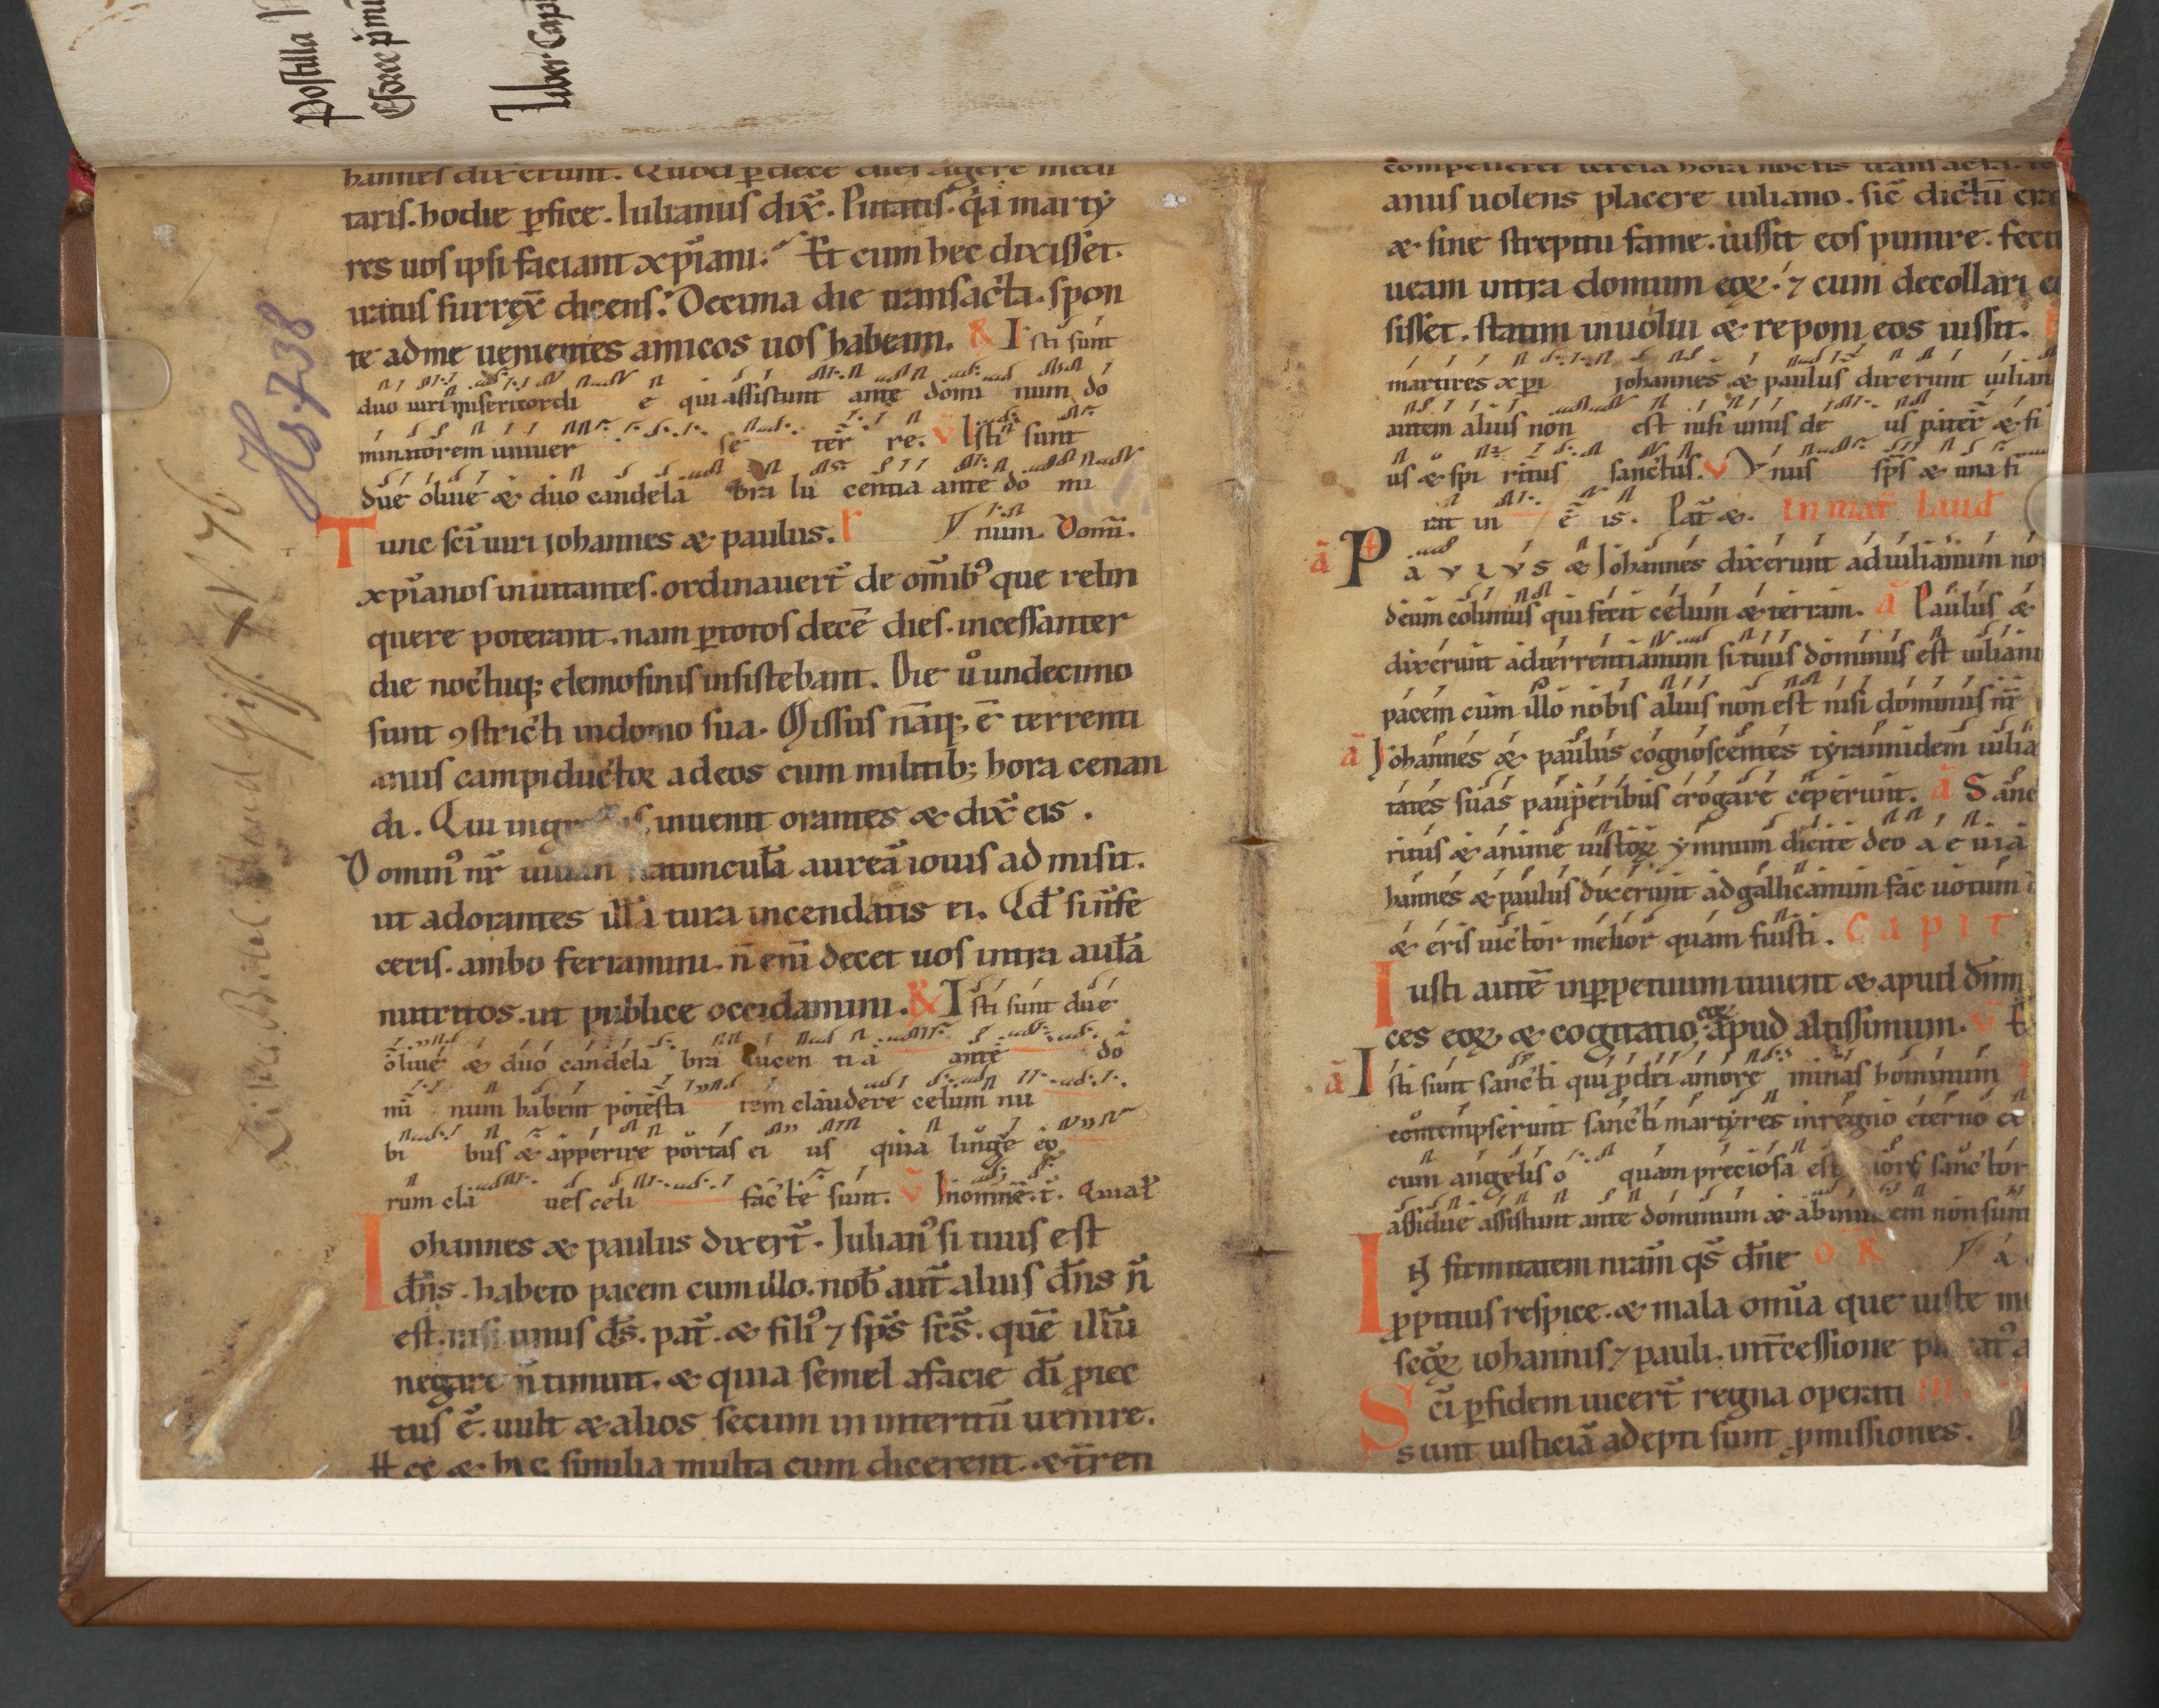 Postilla
Esdree prim
Liber Capi
Hs 738
hannes dixerunt. Quod ꝑ dece dies agere medi
taris. hodie ꝑfice. Iulianus dix̄. Putatis. q̇a marty
res uos ipsi faciant xp̄iani. Et cum hec dixisset.
uniti surrex̄ dicens. Decima die transacta. spon
te ad me uenientes amicos uos habeam. R Isti sunt
duo uiri misericordi e qui assistunt ante domi num do
minatorem uniuer se terr̄ re. v̄ Isti sunt
due oliue & duo candela bra lu centia ante do mi
Tunc sc̄i uiri iohannes & paulus. r V num. Domī.
xp̄ianos inuitantes. ordinauer̄t de om̄ibꝰ que relin
quere poterant. nam ꝑ totos decē dies. incessanter
die noctuq; elemosinis insistebant. Die u̇ undecimo
sunt ꝯstricti in domo sua. Missus nāq; ē terrenti
anus campiductor ad eos cum militib; hora cenan
di. Qui ingressus inuenit orantes & dix̄ eis.
Dominꝰ nr̄ iulian statuncula aureā iouis ad misit.
ut adorantes illi tura incendatis ei. Qd̄ si n̄ fe
ceris. ambo feriamini. n̄ eni decet uos intra aula
nutritos. ut publice occidamini. R Isti sunt due
oliue & duo candela bra lucen ti a ante do
mi num habent potesta tem claudere celum nu
bi bus & apperire portas ei us quia lingue eo
rum cla ues celi facte sunt. v̄ In omnē. t̄. Quiat̄
Iohannes & paulus dixer̄t. Iulianꝰ si tuus est
dn̄s. habeto pacem cum illo. nob̄ aut̄ alius dn̄s n̄
est. nisi unus ds̄. pat̄. & filiꝰ ⁊ sps̄ scs̄. quē illū
negare n̄ timuit. & quia semel a facie di ꝓiec
tus ē. uult & alios secum in interitū uenire.
Hec & his similia multa cum dicerent. & t̄ren
compelleret tercia hora noctis transacta. te
anus uolens placere iuliano. sic̄ dictū era
& sine strepitu fame. iussit eos punire. fecit
ueam intra domum eoꝝ. ⁊ cum decollari eo
sisset. statim inuolui & reponi eos iussit.
martires xp̄i iohannes & paulus dixerunt iulian
autem alius non est nisi unus de us pater & fi
us & spi ritus sanctus. v Vnus sps̄ & una fi
rat in ē is. Pat̄ &. In mat̄ Laud
ā PAVLVS & Iohannes dixerunt ad iulianum nos
deum colimus qui fecit celum & terram. ā Paulus &
dixerunt ad terrentianum si tuus dominus est iulianu
pacem cum illo nobis alius non est nisi dominus nr̄
ā Iohannes & paulus cognoscentes tyrannidem iulia
tates suas pauperibus erogare ceperunt. ā Sanc
ritus & anime iustoꝝ ymnum dicite deo a e u i a
hannes & paulus dixerunt ad gallicanum fac uotum
& eris uictor melior quam fuisti. Capit
Iusti autē in ꝑpetuum uiuent & apud dn̄m
ces eoꝝ & cogitatio eoꝝ apud altissimum. v̄
ā Isti sunt sancti qui ꝓ dei amore minas hominum
contempserunt sancti martyres in regno eterno ex
cum angelis o quam preciosa est mors sanctor
assidue assistunt ante dominum & ab inuicem non sun
In firmitatem nram̄ qs̄ dn̄e OR
ꝓpitius respice. & mala omīa que iuste me
secꝝ iohannis ⁊ pauli. int̄cessione
Sc̄i ꝑ fidem uicer̄t regna operati
sunt iusticiā adepti sunt ꝓmissiones.